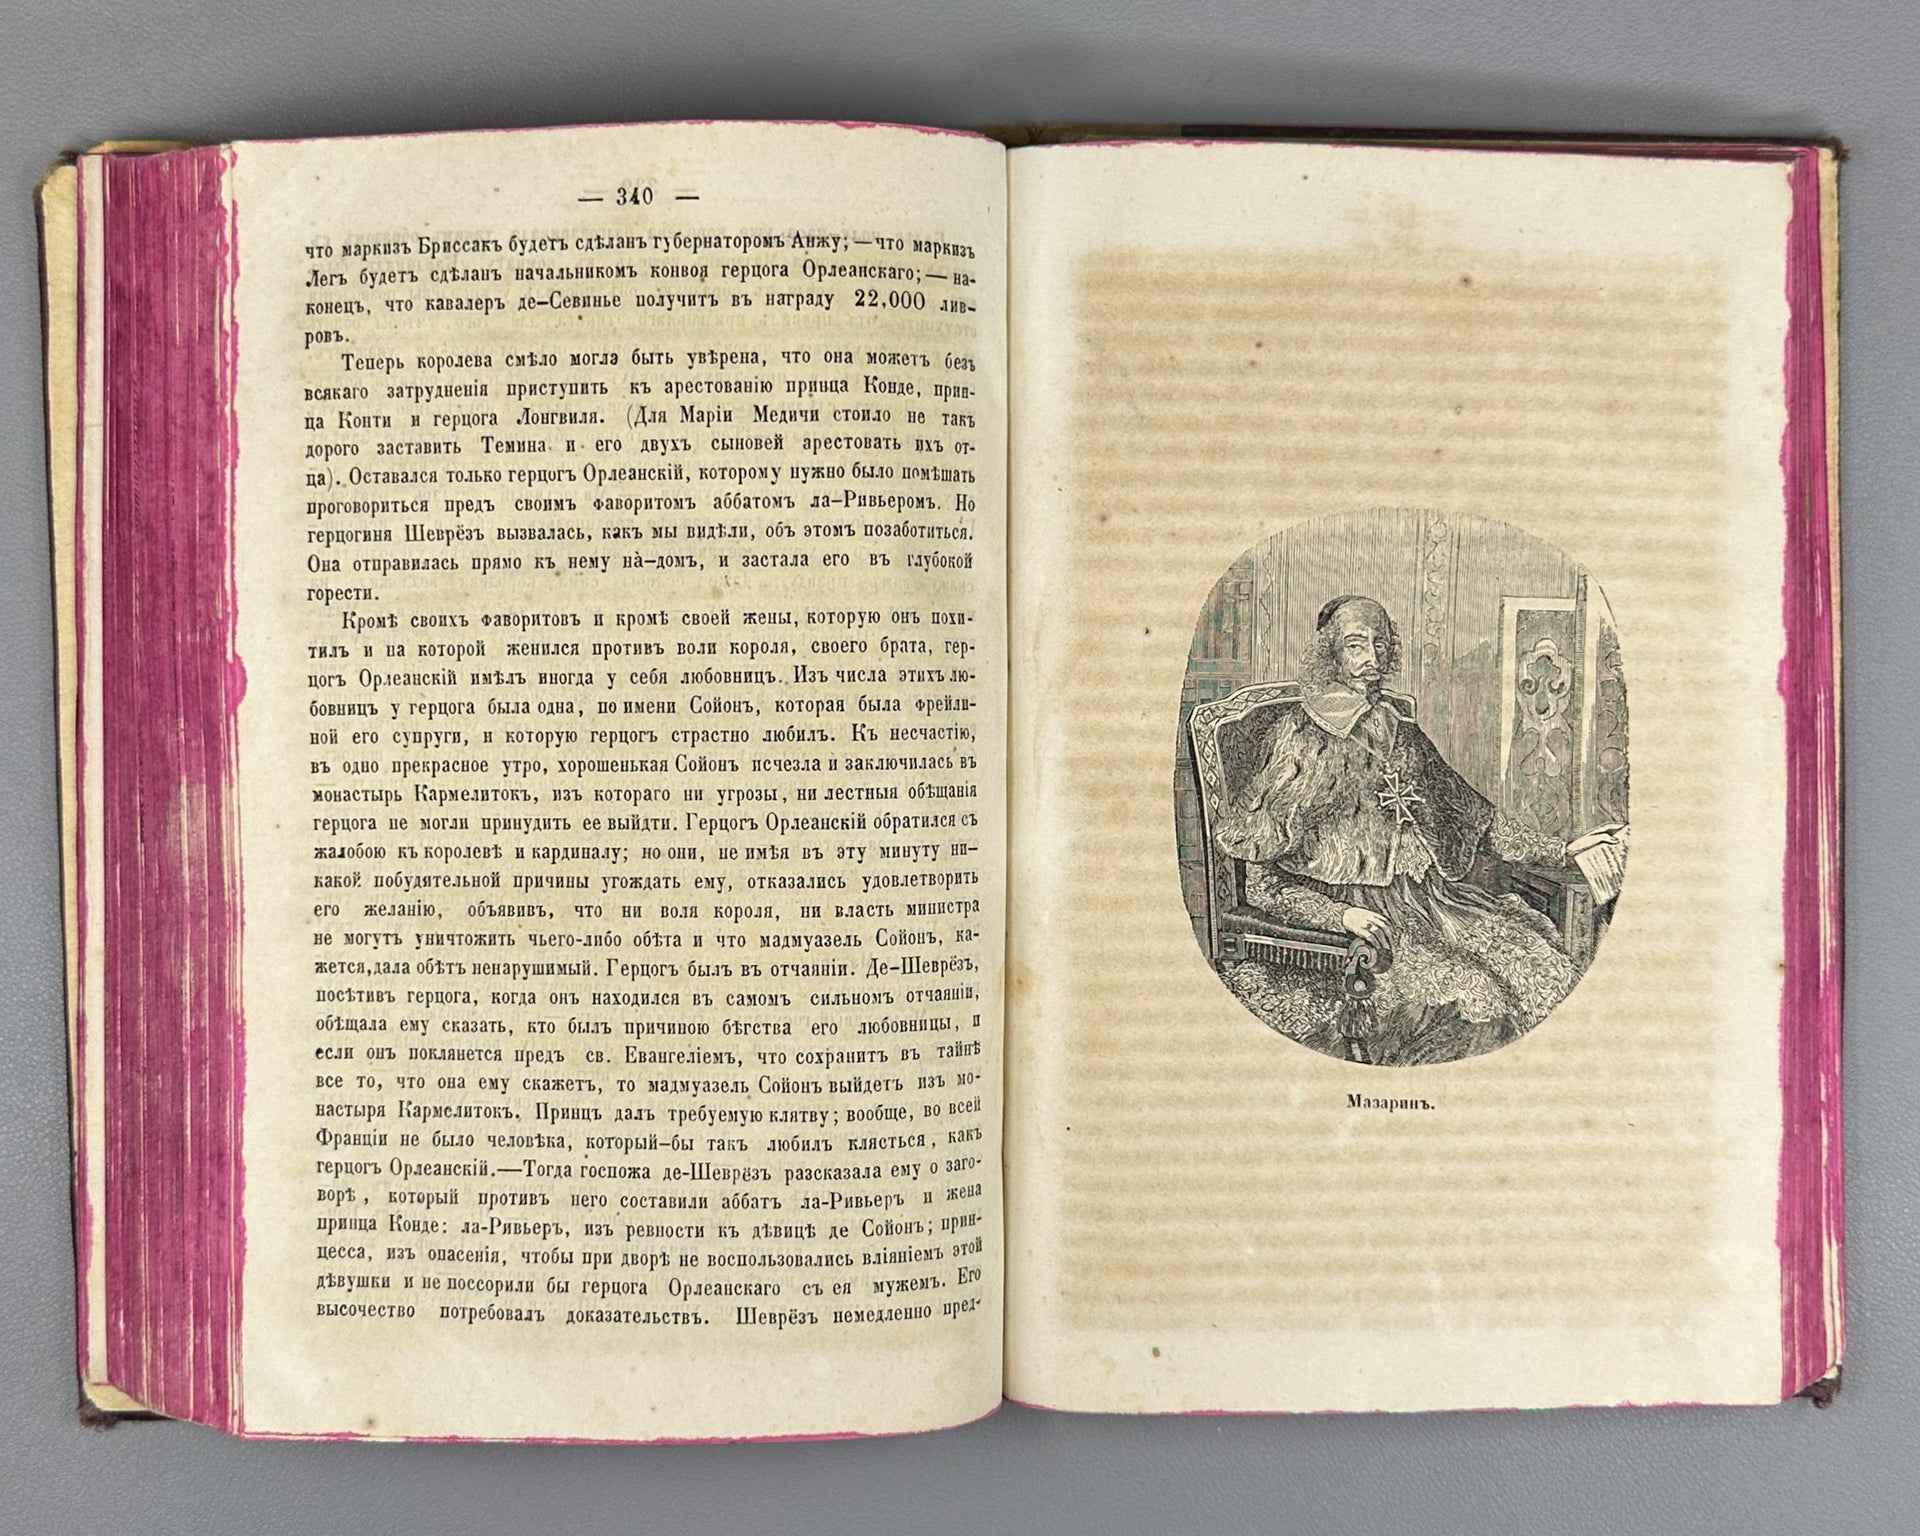 — 340 —
что маркизъ Бриссакъ будетъ сдѣланъ губернаторомъ Анжу;—что маркизъ
Легъ будетъ сдѣланъ начальникомъ конвоя герцога Орлеанскаго;—на-
конецъ, что кавалеръ де-Севинье получитъ въ награду 22,000 лив-
ровъ.
Теперь королева смѣло могла быть увѣрена, что она можетъ безъ
всякаго затрудненія приступить къ арестованію принца Конде, прин-
ца Конти и герцога Лонгвиля. (Для Маріи Медичи стоило не такъ
дорого заставить Темина и его двухъ сыновей арестовать ихъ от-
ца). Оставался только герцогъ Орлеанскій, которому нужно было помѣшать
проговориться предъ своимъ фаворитомъ аббатомъ ла-Ривьеромъ. Но
герцогиня Шеврёзъ вызвалась, какъ мы видѣли, объ этомъ позаботиться.
Она отправилась прямо къ нему на̀-домъ, и застала его въ глубокой
горести.
Кромѣ своихъ фаворитовъ и кромѣ своей жены, которую онъ похи-
тилъ и на которой женился противъ воли короля, своего брата, гер-
цогъ Орлеанскій имѣлъ иногда у себя любовницъ. Изъ числа этихъ лю-
бовницъ у герцога была одна, по имени Сойонъ, которая была фрейли-
ной его супруги, и которую герцогъ страстно любилъ. Къ несчастію,
въ одно прекрасное утро, хорошенькая Сойонъ исчезла и заключилась въ
монастырь Кармелитокъ, изъ котораго ни угрозы, ни лестныя обѣщанія
герцога не могли принудить ее выйдти. Герцогъ Орлеанскій обратился съ
жалобою къ королевѣ и кардиналу; но они, не имѣя въ эту минуту ни-
какой побудятельной причины угождать ему, отказались удовлетворить
его желанію, объявивъ, что ни воля короля, ни власть министра
не могутъ уничтожить чьего-либо обѣта и что мадмуазель Сойонъ, ка-
жется,дала обѣтъ ненарушимый. Герцогъ былъ въ отчаяніи. Де-Шеврёзъ,
посѣтивъ герцога, когда онъ находился въ самомъ сильномъ отчаяніи,
обѣщала ему сказать, кто былъ причиною бѣгства его любовницы, и
если онъ поклянется предъ св. Евангеліемъ, что сохранитъ въ тайнѣ
все то, что она ему скажетъ, то мадмуазель Сойонъ выйдетъ изъ мо-
настыря Кармелитокъ. Принцъ далъ требуемую клятву; вообще, во всей
Франціи не было человѣка, который-бы такъ любилъ клясться, какъ
герцогъ Орлеанскій.—Тогда госпожа де-Шеврёзъ разсказала ему о заго-
ворѣ, который противъ него составили аббатъ ла-Ривьеръ и жена
принца Конде: ла-Рявьеръ, изъ ревности къ дѣвицѣ де Сойонъ; прин-
цесса, изъ опасенія, чтобы при дворѣ не воспользовались вліяніемъ этой
дѣвушки и не поссорили бы герцога Орлеанскаго съ ея мужемъ. Его
высочество потребовалъ доказательствъ. Шеврёзъ немедленно пред-
Мазаринъ.